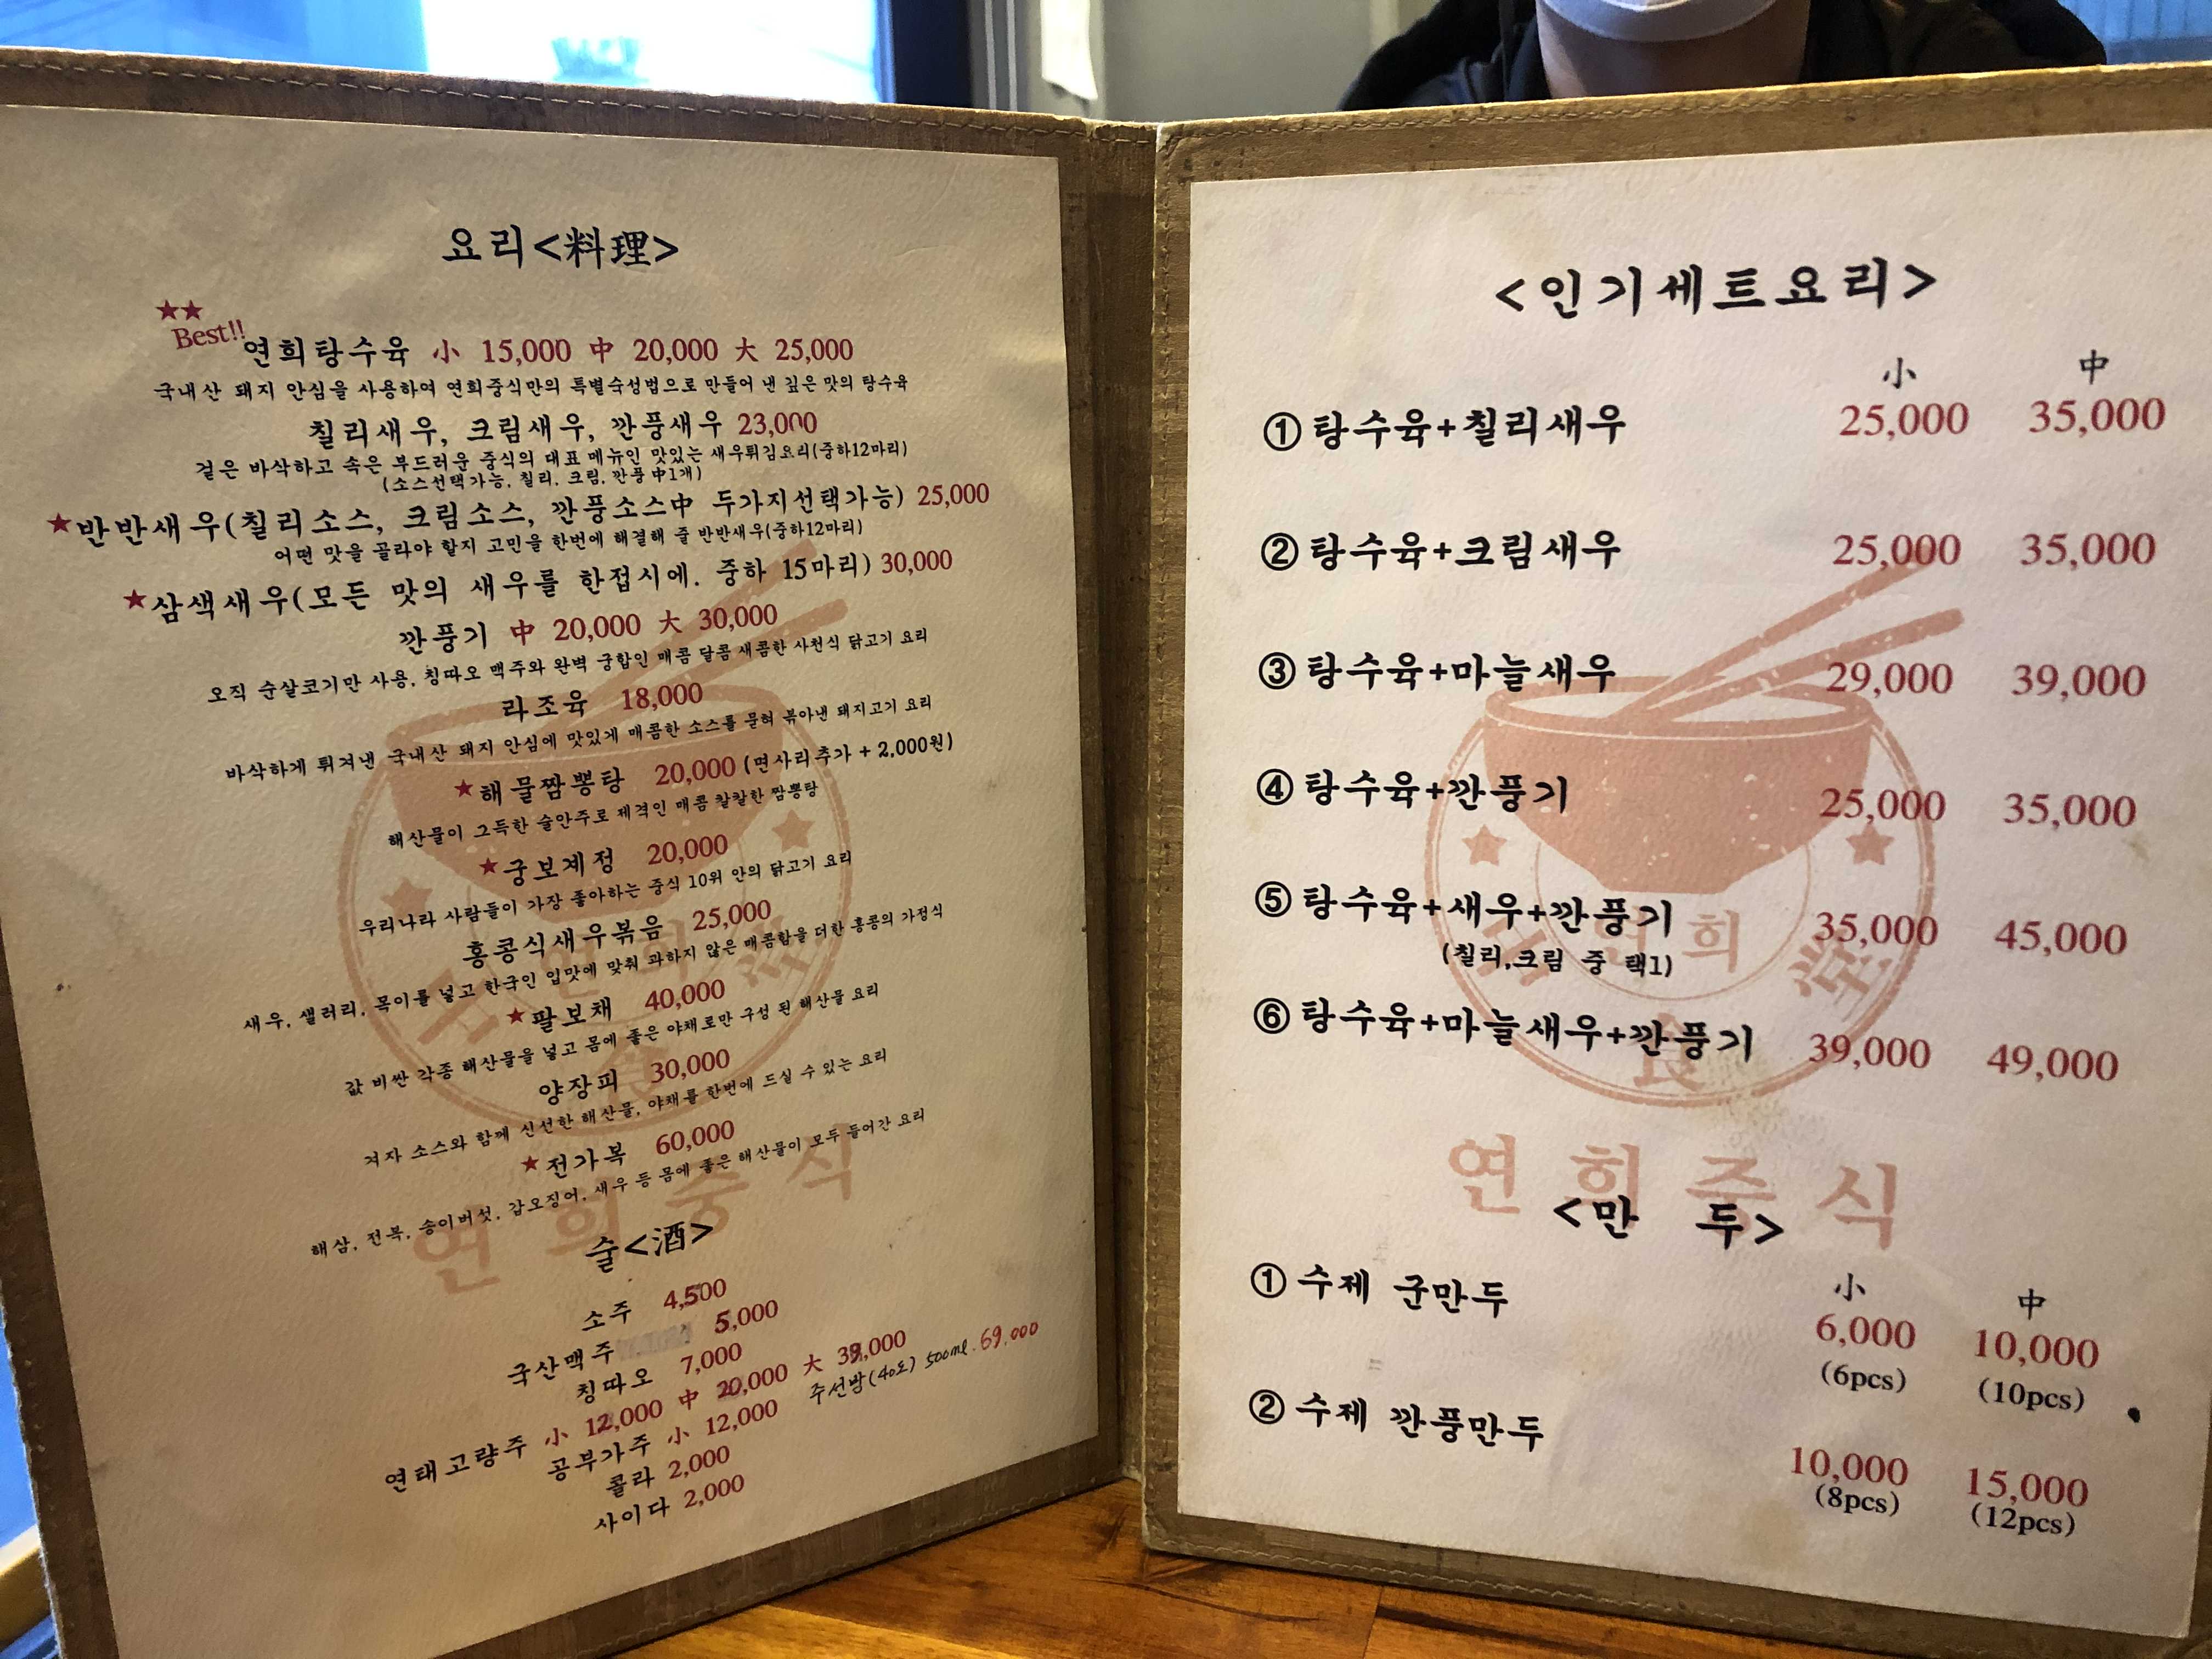 요리<料理>
★★
Best!!
연희탕수육 小 15,000 中 20,000 大 25,000
국내산 돼지 안심을 사용하여 연희중식만의 특별숙성법으로 만들어 낸 깊은 맛의 탕수육
칠리새우, 크림새우, 깐풍새우 23,000
겉은 바삭하고 속은 부드러운 중식의 대표 메뉴인 맛있는 새우튀김요리(중하12마리)
(소스선택가능, 칠리, 크림, 깐풍 中1개)
★반반새우(칠리소스, 크림소스, 깐풍소스中 두가지선택가능) 25,000
어떤 맛을 골라야 할지 고민을 한번에 해결해 줄 반반새우(중하12마리)
★삼색새우(모든 맛의 새우를 한접시에. 중하 15마리) 30,000
깐풍기 中 20,000 大 30,000
오직 순살코기만 사용, 칭따오 맥주와 완벽 궁합인 매콤 달콤 새콤한 사천식 닭고기 요리
라조육 18,000
바삭하게 튀겨낸 국내산 돼지 안심에 맛있게 매콤한 소스를 묻혀 볶아낸 돼지고기 요리
★해물짬뽕탕 20,000 (면사리추가 + 2,000원)
해산물이 그득한 술안주로 제격인 매콤 칼칼한 짬뽕탕
★궁보계정 20,000
우리나라 사람들이 가장 좋아하는 중식 10위 안의 닭고기 요리
홍콩식새우볶음 25,000
새우, 샐러리, 목이를 넣고 한국인 입맛에 맞춰 과하지 않은 매콤함을 더한 홍콩의 가정식
★팔보채 40,000
값 비싼 각종 해산물을 넣고 몸에 좋은 야채로만 구성 된 해산물 요리
양장피 30,000
겨자 소스와 함께 신선한 해산물, 야채를 한번에 드실 수 있는 요리
★전가복 60,000
해삼, 전복, 송이버섯, 갑오징어, 새우 등 몸에 좋은 해산물이 모두 들어간 요리
연희중식
술<酒>
소주 4,500
국산맥주 5,000
칭따오 7,000
연태고량주 小 12,000 中 20,000 大 39,000
공부가주 小 12,000 주선밤(40도) 500ml. 69,000
콜라 2,000
사이다 2,000
<인기세트요리>
小 中
① 탕수육+칠리새우 25,000 35,000
② 탕수육+크림새우 25,000 35,000
③ 탕수육+마늘새우 29,000 39,000
④ 탕수육+깐풍기 25,000 35,000
⑤ 탕수육+새우+깐풍기 35,000 45,000
(칠리,크림 중 택1)
⑥ 탕수육+마늘새우+깐풍기 39,000 49,000
연희중식
<만 두>
小 中
① 수제 군만두 6,000 10,000
(6pcs) (10pcs)
② 수제 깐풍만두 10,000 15,000
(8pcs) (12pcs)